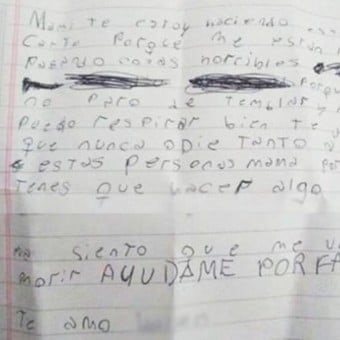 Mami te estoy haciendo est
Carta Porque me estan
Pasando cosas horribles
Porqu
no Paro de temblar y
Puedo respirar bien te
que nunca odie Tanto a
estas Personas mama Por
Tenes que hacer algo
siento que me v
morir AYUDAME POR FA
Te amo